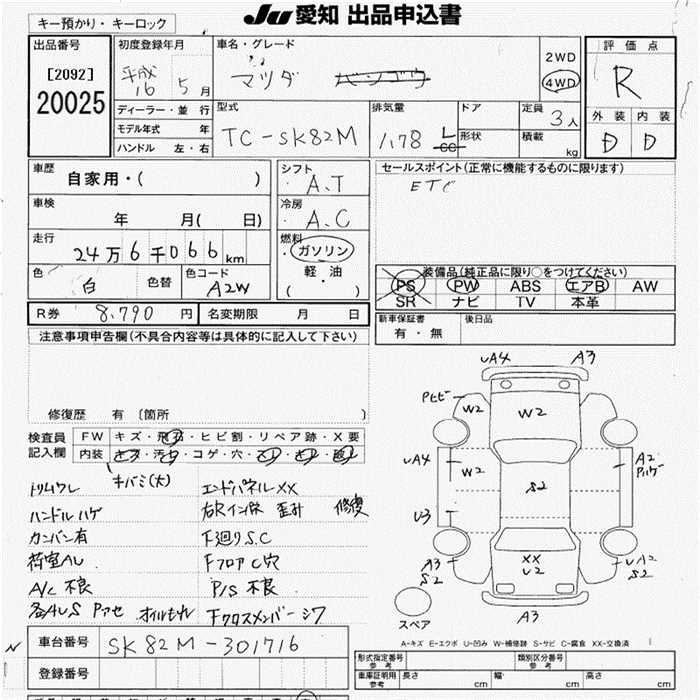 キー預かり・キーロック
JU 愛知 出品申込書
出品番号
[2092]
20025
初度登録年月
平成
16 5月
車名・グレード
マツダ
2WD
4WD
評価点
R
外装 内装
D D
ディーラー・並行
モデル年式 年
ハンドル 左・右
型式
TC-SK82M
排気量
1.78 L
cc
ドア
形状
定員
3人
積載
kg
車歴
自家用・( )
車検
年 月( 日)
走行
24万6千066km
色
白
色替
色コード
A2W
シフト
A.T
冷房
A.C
燃料
ガソリン
軽・油
( )
セールスポイント(正常に機能するものに限ります)
ETC
装備品(純正品に限り○をつけてください)
PS PW ABS エアB AW
SR ナビ TV 本革
R券 8,790円
名変期限 月 日
新車保証書
有・無
後日品
注意事項申告欄(不具合内容等は具体的に記入して下さい)
修復歴 有 〔箇所 〕
検査員
記入欄
FW キズ・飛石・ヒビ割・リペア跡・X要
内装 キズ・汚れ・コゲ・穴・
キバミ(大)
トリムワレ エンドパネルXX
ハンドルハゲ 右Rインホ 歪み 修復
カンバン有 下廻りS.C
荷室AU FフロアC穴
A/C 不良 P/S 不良
各AUS Pアセ オイルもれ Fクロスメンバーシワ
車台番号 SK82M-301716
登録番号
UA4 A3
Pヒビ
W2 W2
UA4 W2
S2
A2
Pハゲ
U3
A3
S2
XX
U2
UA2
S2
A3
スペア
A-キズ E-エクボ U-凹み W-補修跡 S-サビ C-腐食 XX-交換済
形式指定番号
参考
類別区分番号
参考
車庫証明用
参考
長さ cm 幅 cm 高さ cm